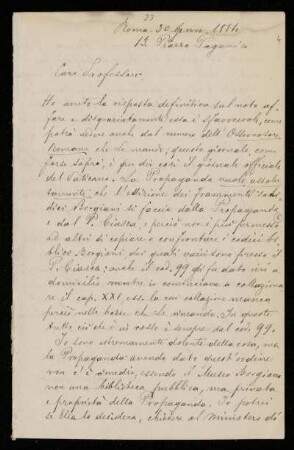 Roma 30 Genn. 1884
13 Piazza Paganica
Caro Professore,
Ho avuto la risposta definitiva sul noto af-
fare e disgraziatamente essa è sfavorevole, come
potrà vedere anche dal numero dell'Osservatore
Romano che le mando; questo giornale, come
forse saprà, è per dir così il giornale officiale
del Vaticano. La Propaganda vuole assolu-
tamente che l'edizione dei frammenti saidi-
dici Borgiani si faccia dalla Propaganda
e dal P. Ciasca, e perciò non è più permesso
ad altri di copiare e confrontare i codici bi-
blico Borgiani dei quali varii sono presso il
P. Ciasca; anche il cod. 99 gli fu dato ieri a
domicilio mentre io cominciava a collaziona-
re il cap. XXI, est. la cui collazione manca
perciò nelle bozze che le rimando. In queste
tutto ciò che è in rosso è sempre dal cod. 99.
Io sono estremamente dolente della cosa, ma
la Propaganda avendo dato quest'ordine
non c'è rimedio, essendo il Museo Borgiano
non una biblioteca pubblica, ma privata
e proprietà della Propaganda. Io potrei
se Ella lo desidera, chiedere al ministero di